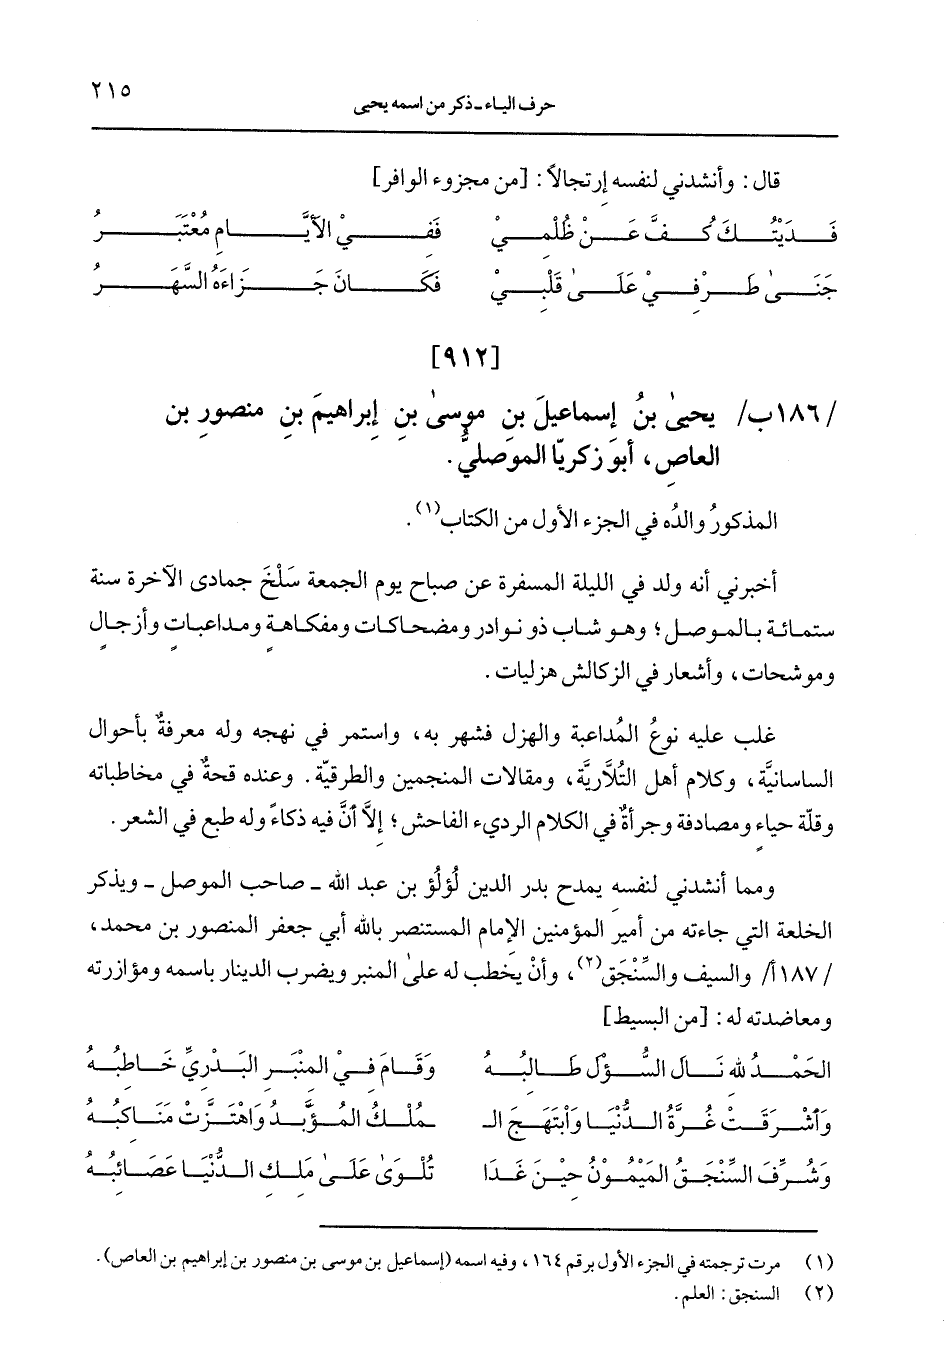 ٢١٥
حرف الياء ـ ذكر من اسمه يحيى
قال: وأنشدني لنفسه إرتجالاً: [من مجزوء الوافر]
فَدَيْتُكَ كُفَّ عَنْ ظُلْمِيْ فَفِيْ الأيَّامِ مُعْتَبَرُ
جَنَىٰ طَرْفِيْ عَلَىٰ قَلْبِيْ فَكَانَ جَزَاءَهُ السَّهَرُ
[٩١٢]
/١٨٦ب/ يحيىٰ بنُ إسماعيلَ بنِ موسىٰ بنِ إبراهيمَ بنِ منصورِ بن
العاصِ، أبو زكريّا الموصليُّ.
المذكورُ والدُه في الجزء الأول من الكتاب(١).
أخبرني أنه ولد في الليلة المسفرة عن صباح يوم الجمعة سَلْخَ جمادى الآخرة سنة
ستمائة بالموصل؛ وهو شاب ذو نوادر ومضحاكات ومفكاهة ومداعباتٍ وأزجالٍ
وموشحات، وأشعار في الزكالش هزليات.
غلب عليه نوعُ المُداعبة والهزل فشهر به، واستمر في نهجه وله معرفةٌ بأحوال
الساسانيَّة، وكلام أهل التُلَّاريَّة، ومقالات المنجمين والطرقيّة. وعنده قحةٌ في مخاطباته
وقلّة حياءٍ ومصادفة وجرأةٌ في الكلام الرديء الفاحش؛ إلاَّ أنَّ فيه ذكاءً وله طبع في الشعر.
ومما أنشدني لنفسه يمدح بدر الدين لُؤلُؤ بن عبد الله ـ صاحب الموصل ـ ويذكر
الخلعة التي جاءته من أمير المؤمنين الإمام المستنصر بالله أبي جعفر المنصور بن محمد،
/١٨٧أ/ والسيف والسِّنْجَق(٢)، وأنْ يخطب له علىٰ المنبر ويضرب الدينار باسمه ومؤازرته
ومعاضدته له: [من البسيط]
الحَمْدُ للهِ نَالَ السُّؤْلَ طَالِبُهُ وَقَامَ فِيْ المِنْبَرِ البَدْرِيِّ خَاطِبُهُ
وَأَشْرَقَتْ غُرَّةُ الدُّنْيَا وَابْتَهَجَ الـ ـمُلْكُ المُؤَيَّدُ وَاهْتَزَّتْ مَنَاكِبُهُ
وَشُرِّفَ السِّنْجَقُ المَيْمُونُ حِيْنَ غَدَا تُلْوَىٰ عَلَىٰ مَلِكِ الدُّنْيَا عَصَائِبُهُ
(١) مرت ترجمته في الجزء الأول برقم ١٦٤، وفيه اسمه (إسماعيل بن موسى بن منصور بن إبراهيم بن العاص).
(٢) السنجق: العلم.